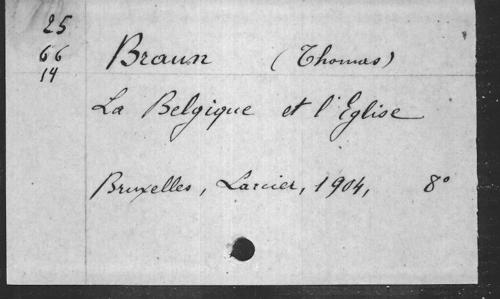 25
66
14
Braun (Thomas)
La Belgique et l'Eglise
Bruxelles, Larcier, 1904, 8°